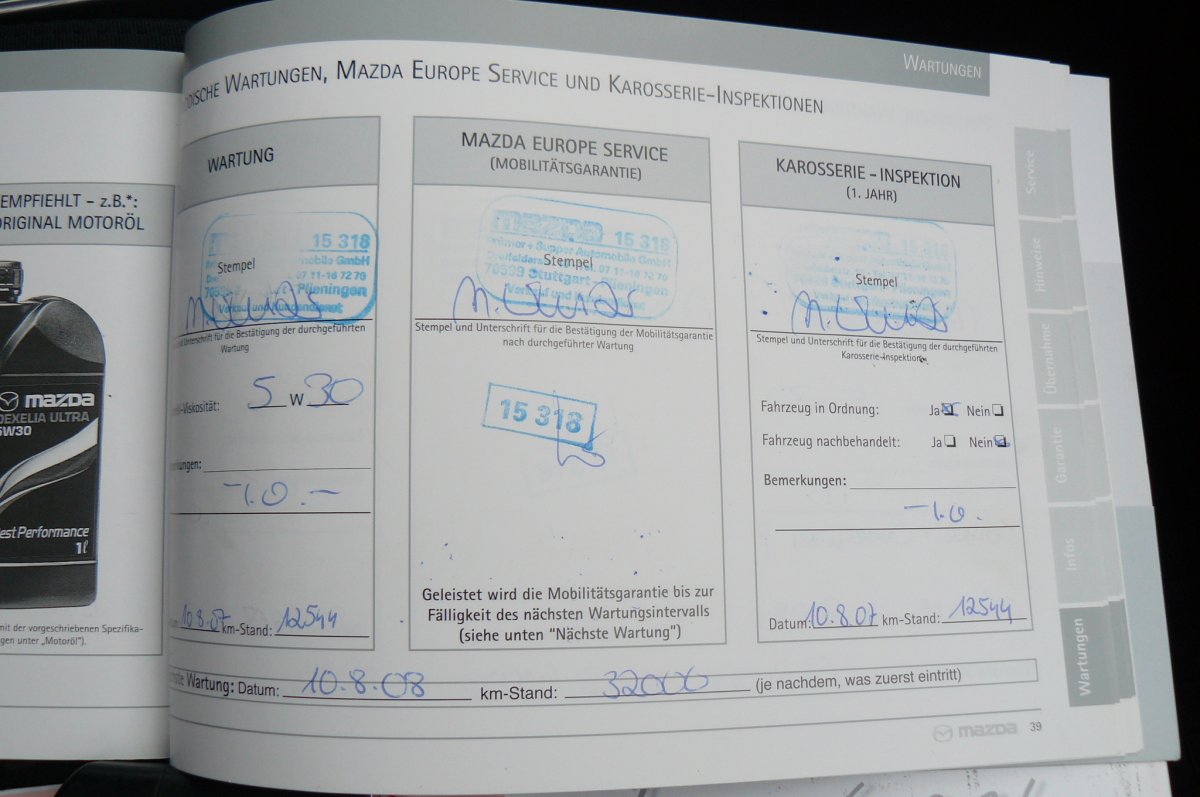 WARTUNGEN
WARTUNGEN, MAZDA EUROPE SERVICE UND KAROSSERIE-INSPEKTIONEN
EMPFIEHLT - z.B.*:
ORIGINAL MOTORÖL
mazda
DEXELIA ULTRA
5W30
Best Performance
1ℓ
mit der vorgeschriebenen Spezifika-
gen unter „Motoröl").
WARTUNG
15 318
Stempel
07 11-16 72 70
Plieningen
und Unterschrift für die Bestätigung der durchgeführten
Wartung
-Viskosität: 5 W 30
-i.O.-
10.8.07 km-Stand: 12544
MAZDA EUROPE SERVICE
(MOBILITÄTSGARANTIE)
mazda 15 318
Stempel
07 11-16 72 70
70599 Stuttgart-Plieningen
Stempel und Unterschrift für die Bestätigung der Mobilitätsgarantie
nach durchgeführter Wartung
15 318
Geleistet wird die Mobilitätsgarantie bis zur
Fälligkeit des nächsten Wartungsintervalls
(siehe unten "Nächste Wartung")
KAROSSERIE - INSPEKTION
(1. JAHR)
15 318
Stempel
Stempel und Unterschrift für die Bestätigung der durchgeführten
Karosserie-Inspektion
Fahrzeug in Ordnung: Ja Nein
Fahrzeug nachbehandelt: Ja Nein
Bemerkungen:
-i.O.
Datum: 10.8.07 km-Stand: 12544
Wartung: Datum: 10.8.08 km-Stand: 32000 (je nachdem, was zuerst eintritt)
mazda 39
Service
Hinweise
Übernahme
Garantie
Infos
Wartungen